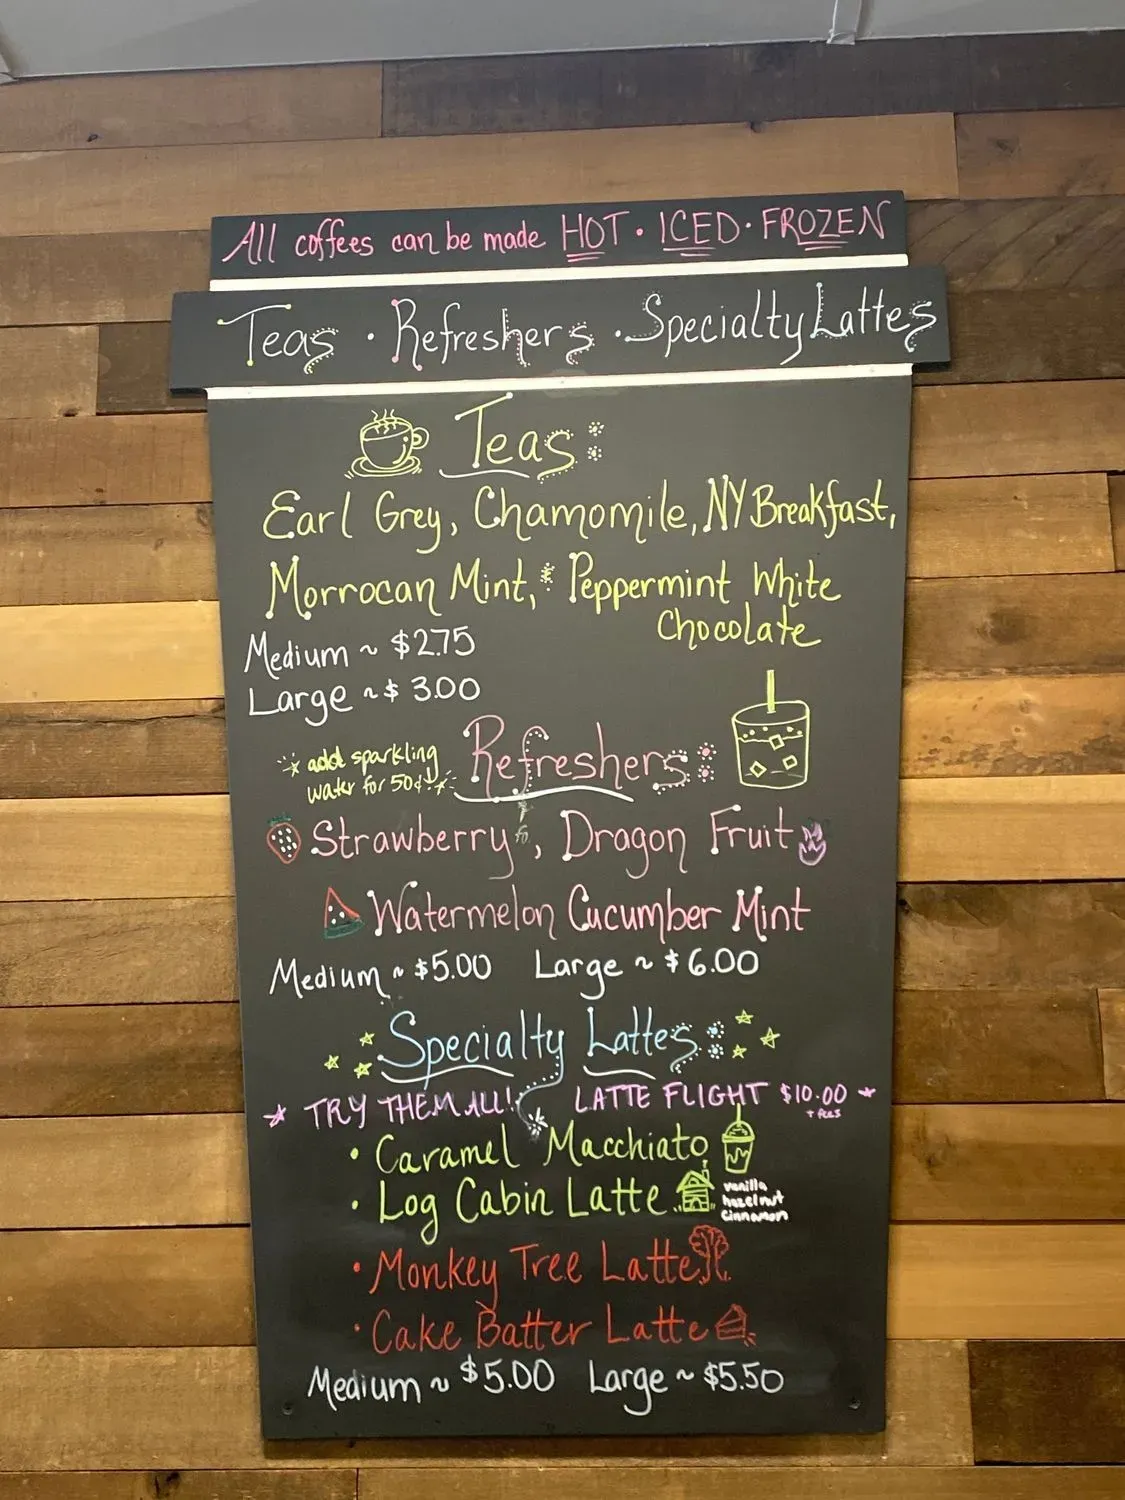 All coffees can be made HOT · ICED · FROZEN
Teas · Refreshers · Specialty Lattes
Teas:
Earl Grey, Chamomile, NY Breakfast,
Morrocan Mint, & Peppermint White
Chocolate
Medium ~ $2.75
Large ~ $ 3.00
add sparkling
water for 50¢
Refreshers:
Strawberry, Dragon Fruit
Watermelon Cucumber Mint
Medium ~ $5.00 Large ~ $6.00
Specialty Lattes:
TRY THEM ALL! LATTE FLIGHT $10.00
+ fees
• Caramel Macchiato
• Log Cabin Latte
vanilla
hazelnut
cinnamon
• Monkey Tree Latte
• Cake Batter Latte
Medium ~ $5.00 Large ~ $5.50